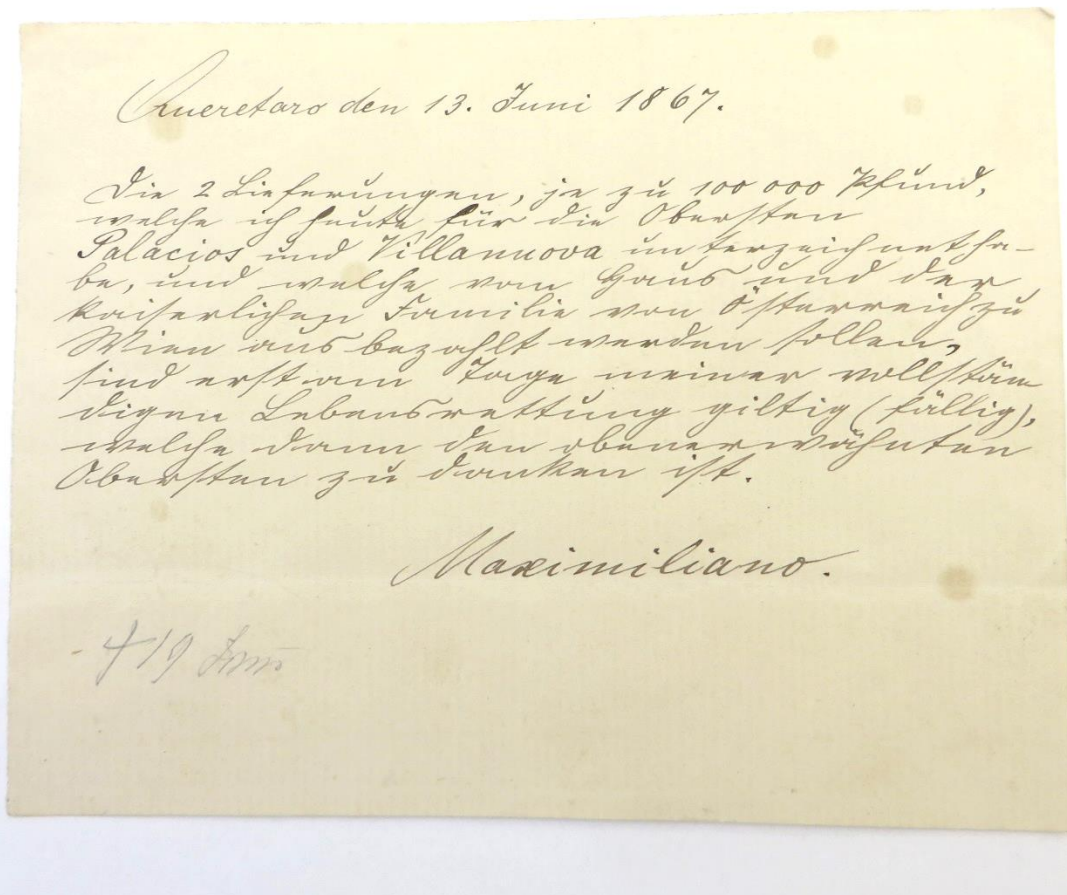 Queretaro den 13. Juni 1867.
Die 2 Lieferungen, je zu 100 000 Pfund,
welche ich heute für die Obersten
Palacios und Villanuova unterzeichnet ha-
be, und welche vom Haus und der
kaiserlichen Familie von Österreich zu
Wien ausbezahlt werden sollen,
sind erst am Tage meiner vollstän
digen Lebensrettung giltig (fällig),
welche dann den obenerwähnten
Obersten zu danken ist.
Maximiliano.
† 19 Juni